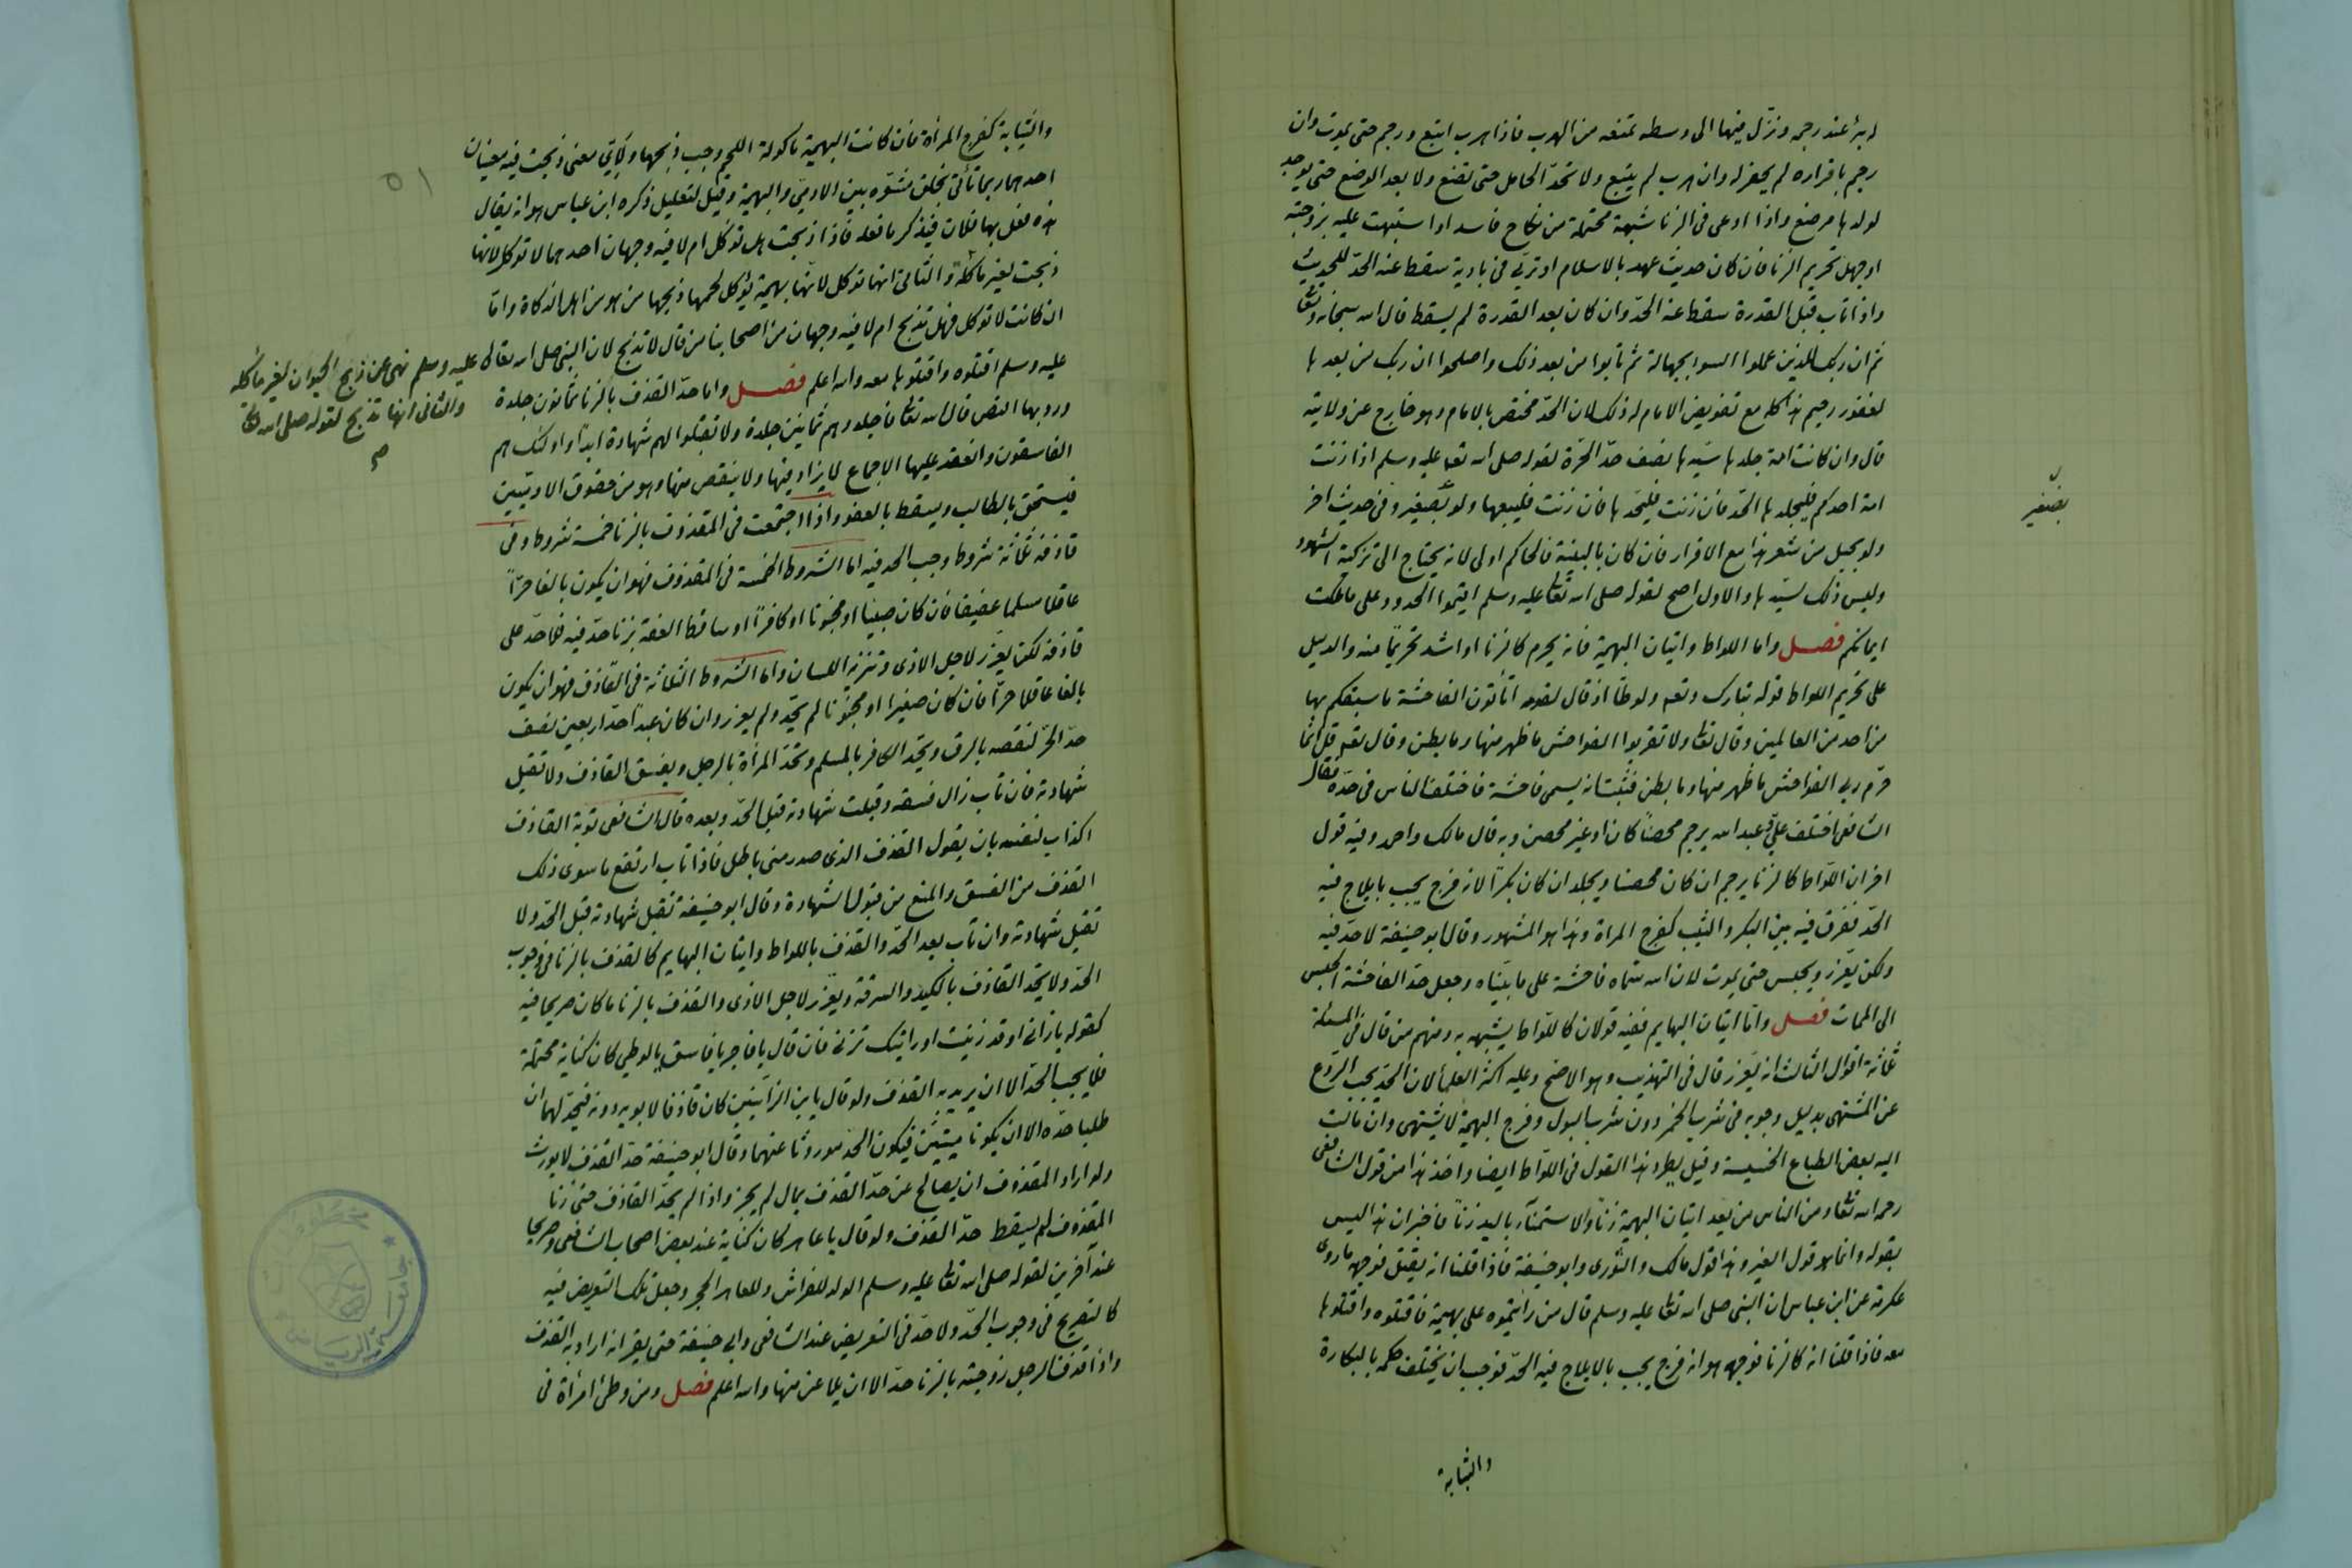 له بئر عند رجمه ونزل فيها الى وسطه تمنعه من الهرب فاذا هرب اتبع ورجم حتى يموت وان
رجم باقراره لم يحفر له وان هرب لم يتبع ولا تحدّ الحامل حتى تضع ولا بعد الوضع حتى يوجد
لولدها مرضع واذا ادعى فى الزنا شبهة محتملة من نكاح فاسد او اشتبهت عليه بزوجته
او جهل تحريم الزنا فان كان حديث عهد بالاسلام او تربّى فى بادية سقط عنه الحدّ للحديث
واذا تاب قبل القدرة سقط عنه الحدّ وان كان بعد القدرة لم يسقط قال الله سبحانه وتعا
ثم ان ربك للذين عملوا السوء بجهالة ثم تابوا من بعد ذلك واصلحوا ان ربك من بعدها
لغفور رحيم هذا كله مع تفويض الامام له ذلك لان الحدّ مختص بالامام وهو خارج عن ولايته
قال وان كانت امة جلدها سيّدها نصف حدّ الحرّة لقوله صلى الله تعا عليه وسلم اذا زنت
امة احدكم فليجلدها الحدّ فان زنت فليحدّها فان زنت فليبعها ولو بضفير وفى حديث اخر
بضفير
ولو بحبل من شعر هذا مع الاقرار فان كان بالبينة فالحاكم اولى لانه يحتاج الى تزكية الشهود
وليس ذلك لسيّدها والاول اصح لقوله صلى الله تعا عليه وسلم اقيموا الحدود على ما ملكت
ايمانكم فصل واما اللواط واتيان البهيمة فانه يحرم كالزنا او اشد تحريمًا منه والدليل
على تحريم اللواط قوله تبارك وتعا ولوطًا اذ قال لقومه اتأتون الفاحشة ما سبقكم بها
من احد من العالمين وقال تعا ولا تقربوا الفواحش ما ظهر منها وما بطن وقال تعا قل انّما
حرّم ربى الفواحش ما ظهر منها وما بطن فثبت انه يسمى فاحشة فاختلف الناس فى حدّه فقال
الشافعى اختلف علىّ وعبد الله يرجم محصنًا كان او غير محصن وبه قال مالك واحمد وفيه قول
اخر ان اللّواط كالزنا يرجم ان كان محصنا ويجلد ان كان بكرًا لانه فرج يجب بايلاج فيه
الحدّ ففرق فيه بين البكر والثيب كفرج المراة وهذا هو المشهور وقال ابو حنيفة لا حدّ فيه
ولكن يعزّر ويحبس حتى يموت لان الله سمّاه فاحشة على ما بيّناه وجعل حدّ الفاحشة الحبس
الى الممات فصل وامّا اتيان البهايم ففيه قولان كاللّواط يشبهه به ومنهم من قال فى المسئلة
ثلاثة اقوال الثالث انه يعزّر قال فى التهذيب وهو الاصح وعليه اكثر العلما لان الحدّ يجب للرّدع
عن المشتهى بدليل وجوبه فى شرب الخمر دون شرب البول وفرج البهيمة لا يشتهى وان مالت
اليه بعض الطباع الخسيسة وقيل يطرد هذا القول فى اللّواط ايضا واخذ هذا من قول الشافعى
رحمه الله تعا ومن الناس من يعد اتيان البهيمة زنًا والاستمنآء باليد زنًا فاخبر ان هذا ليس
بقوله وانما هو قول الغير وهذا قول مالك والثورى وابو حنيفة فاذا قلنا انه يقتل فوجهه ما روى
عكرمة عن ابن عباس ان النبى صلى الله تعا عليه وسلم قال من رأيتموه على بهيمة فاقتلوه واقتلوها
معه فاذا قلنا انه كالزنا فوجهه هو انه فرج يجب بالايلاج فيه الحدّ فوجب ان يختلف حكمه بالبكارة
والثيابة
٥١
والثيابة كفرج المرأة فان كانت البهيمة مأكولة اللحم وجب ذبحها ولأىّ معنى ذبحت فيه معنيان
احدهما ربما تأتى بخلق مشوّه بين الادمى والبهيمة وقيل لتعليل ذكره ابن عباس هو انه يقال
هذه فعل بها فلان فيذكر ما فعله فاذا ذبحت هل تؤكل ام لا فيه وجهان احدهما لا توكل لانها
ذبحت لغير مأكلة والثانى انها توكل لانها بهيمة يؤكل لحمها ذبحها من هو من اهل الذكاة وامّا
ان كانت لا توكل فهل تذبح ام لا فيه وجهان من اصحابنا من قال لا تذبح لان النبى صلى الله تعالى عليه وسلم نهى عن ذبح الحيوان لغير مأكله
والثانى انها تذبح لقوله صلى الله تعا
صح
عليه وسلم اقتلوه واقتلوها معه والله اعلم فصل واما حدّ القذف بالزنا ثمانون جلدة
ورد بها النص قال الله تعا فاجلدوهم ثمانين جلدة ولا تقبلوا لهم شهادة ابدًا واولئك هم
الفاسقون وانعقد عليها الاجماع لا يزاد فيها ولا ينقص منها وهو من حقوق الادميين
فيستحق بالطالب ويسقط بالعفو واذا اجتمعت فى المقذوف بالزنا خمسة شروط وفى
قاذفه ثلاثة شروط وجب الحد فيه اما الشروط الخمسة فى المقذوف فهو ان يكون بالغا حرّاً
عاقلا مسلما عفيفا فان كان صبيّا او مجنونا او كافرًا او ساقط العفة بزنا حدّ فيه فلا حدّ على
قاذفه لكن يعزّر لاجل الاذى وتنزيه اللسان واما الشروط الثلاثة فى القاذف فهو ان يكون
بالغا عاقلا حرّا فان كان صغيرًا او مجنونًا لم يحدّ ولم يعزر وان كان عبدًا حدّ اربعين نصف
حدّ الحرّ لنقصه بالرق ويحدّ الكافر بالمسلم وتحدّ المرأة بالرجل ويفسق القاذف ولا تقبل
شهادته فان تاب زال فسقه وقبلت شهادته قبل الحدّ وبعده قال الشافعى توبة القاذف
اكذابه لنفسه بان يقول القذف الذى صدر منى باطل فاذا تاب ارتفع ما سوى ذلك
القذف من الفسق والمنع من قبول الشهادة وقال ابو حنيفة تقبل شهادته قبل الحدّ ولا
تقبل شهادته وان تاب بعد الحدّ والقذف باللواط واتيان البهايم كالقذف بالزنا فى وجوب
الحدّ ولا يحدّ القاذف بالكيد والسرقة ويعزّر لاجل الاذى والقذف بالزنا ما كان صريحا فيه
كقوله يا زانى او قد زنيت او راتيك تزنى فان قال يا فاجر يا فاسق يا لوطى كان كناية محتملة
فلا يجب الحدّ الا ان يريد به القذف ولو قال يا بن الزانيين كان قاذفا لابويه دونه فيحدّ لهما ان
طلبا حدّه الا ان يكونا ميتيْن فيكون الحد موروثا عنهما وقال ابو حنيفة حدّ القذف لا يورث
ولو اراد المقذوف ان يصالح عن حدّ القذف بمال لم يجز واذا لم يحدّ القاذف حتى زنا
المقذوف لم يسقط حدّ القذف ولو قال يا عاهر كان كناية عند بعض اصحاب الشافعى وصريحا
عند آخرين لقوله صلى الله تعا عليه وسلم الولد للفراش وللعاهر الحجر وجعل مالك التعريض فيه
كالتصريح فى وجوب الحدّ ولا حدّ فى التعريض عند الشافعى وابى حنيفة حتى يقر انه اراد به القذف
واذا قذف الرجل زوجته بالزنا حدّ الا ان يلاعن منها والله اعلم فصل ومن وطئ امرأة فى